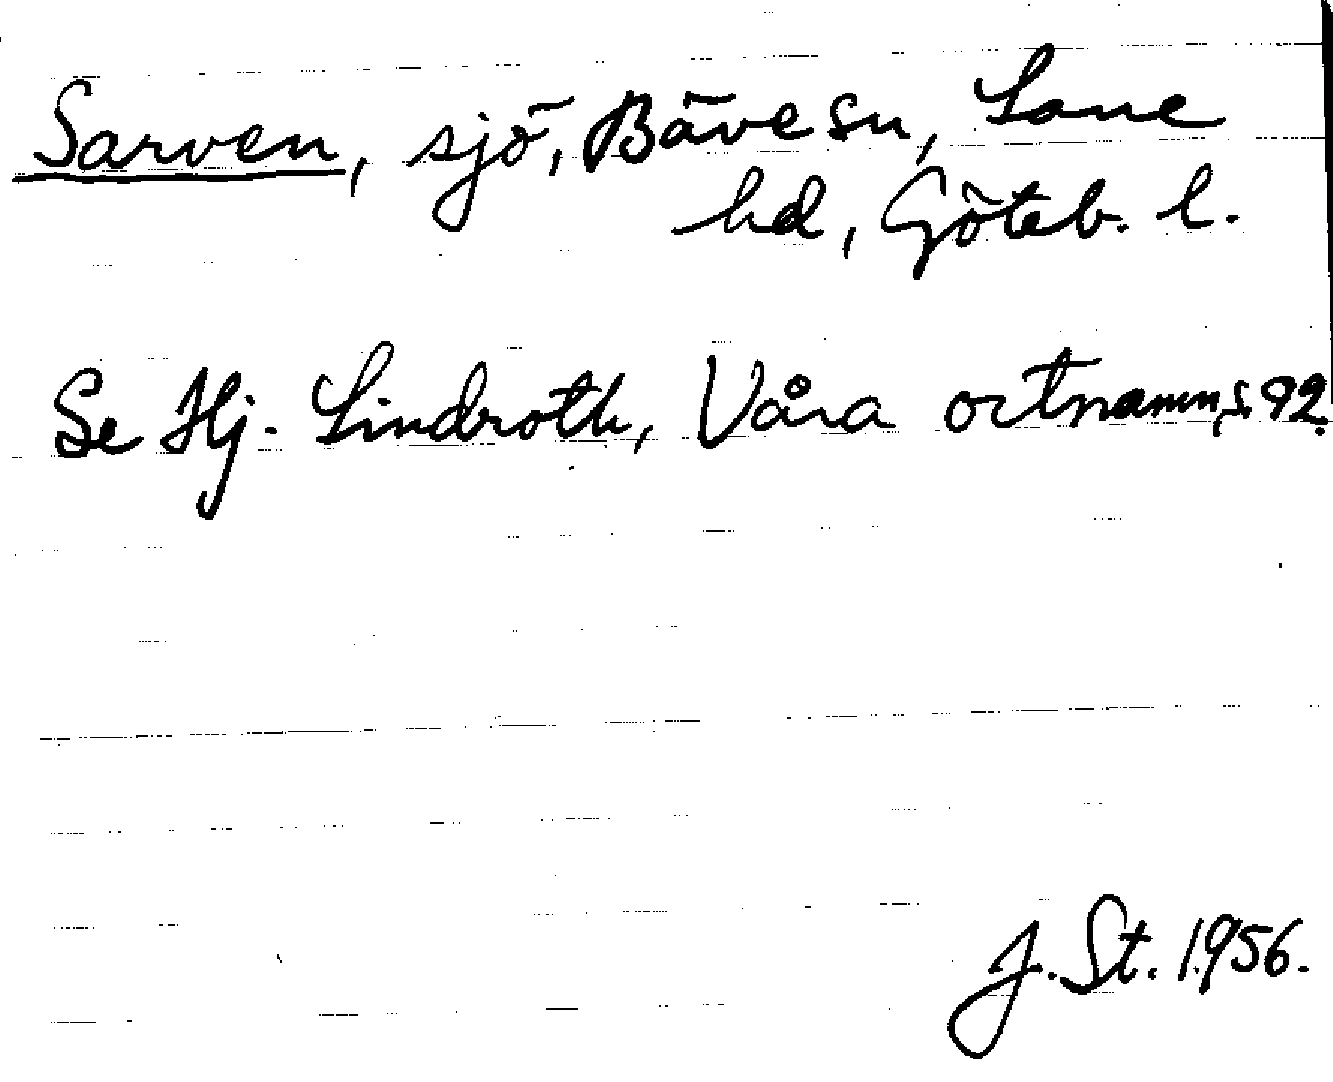 Sarven, sjö, Bäve sn, Lane
hd, Göteb. l.
Se Hj. Lindroth, Våra ortnamn, s. 92.
J. St. 1956.